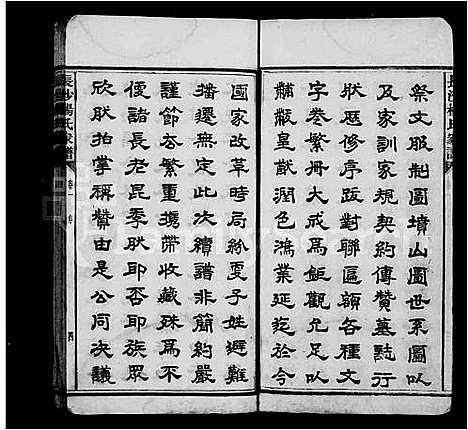 祭文服制圖墳山圖世系圖以
及家訓家規契約傳贊墓誌行
狀歷修序跋對聯匾額各種文
字卷繁帙大成為鉅觀允足以
黼黻皇猷潤色鴻業延茲於今
國家改革時局紛更子姓避難
播遷無定此次續譜非簡約嚴
謹節去繁重攜帶收藏殊為不
便諸長老昆季欣耶否耶族眾
欣然拍掌稱贊由是公同決議